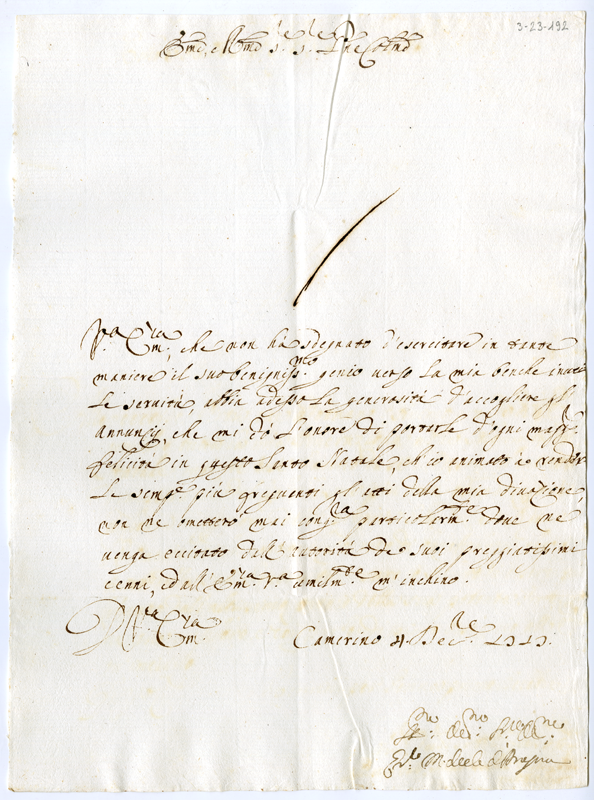 3-23-192
Em.o, e R.mo S.re S.re P.ne Col.mo
V.ra Em.za, che non ha sdegnato d'esercitare in tante
maniere il suo benigniss.mo genio verso la mia benche inuti
le servitù, abbia adesso la generosità d'accogliere gl'
Annunzij, che mi dò l'onore di portarle d'ogni magg.r
felicità in questo Santo Natale, ch'io animato à render
le semp.e più frequenti gl'atti della mia divozione,
non ne ometterò mai cong.ra particolarm.te dove ne
venga eccitato dall'autorità de suoi preggiatissimi
cenni, ed all'Em.za V.ra umilm.te m'inchino.
D V.ra Em.za
Camerino Dec.re